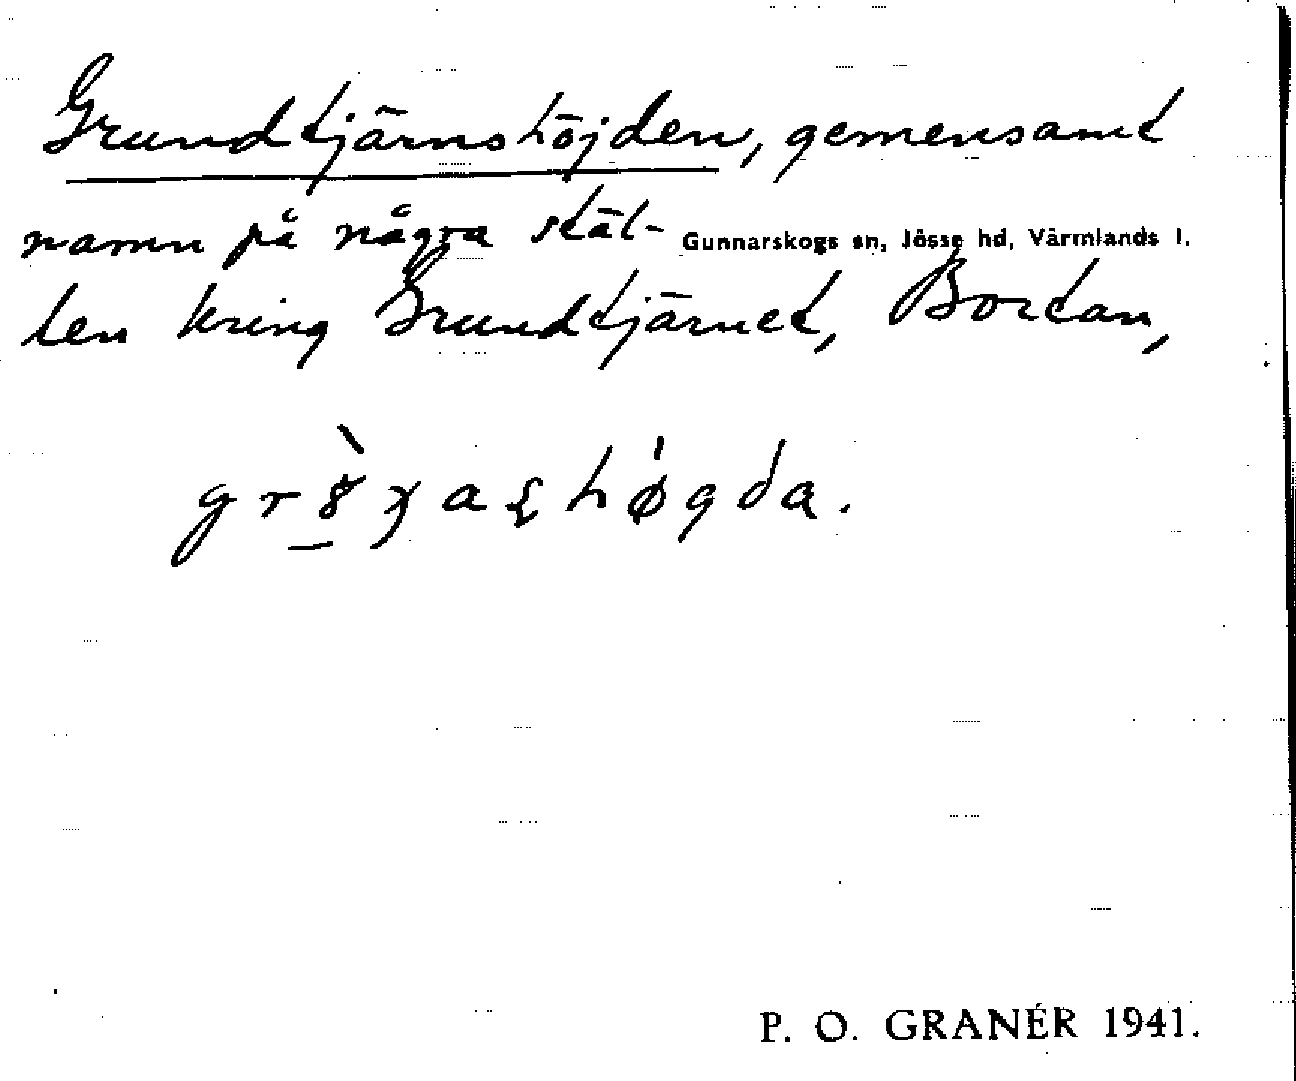 Grundtjärnshöjden, gemensamt
namn på några stäl-
Gunnarskogs sn, Jösse hd, Värmlands l.
len kring Grundtjärnet, Bortan,
P. O. GRANÉR 1941.